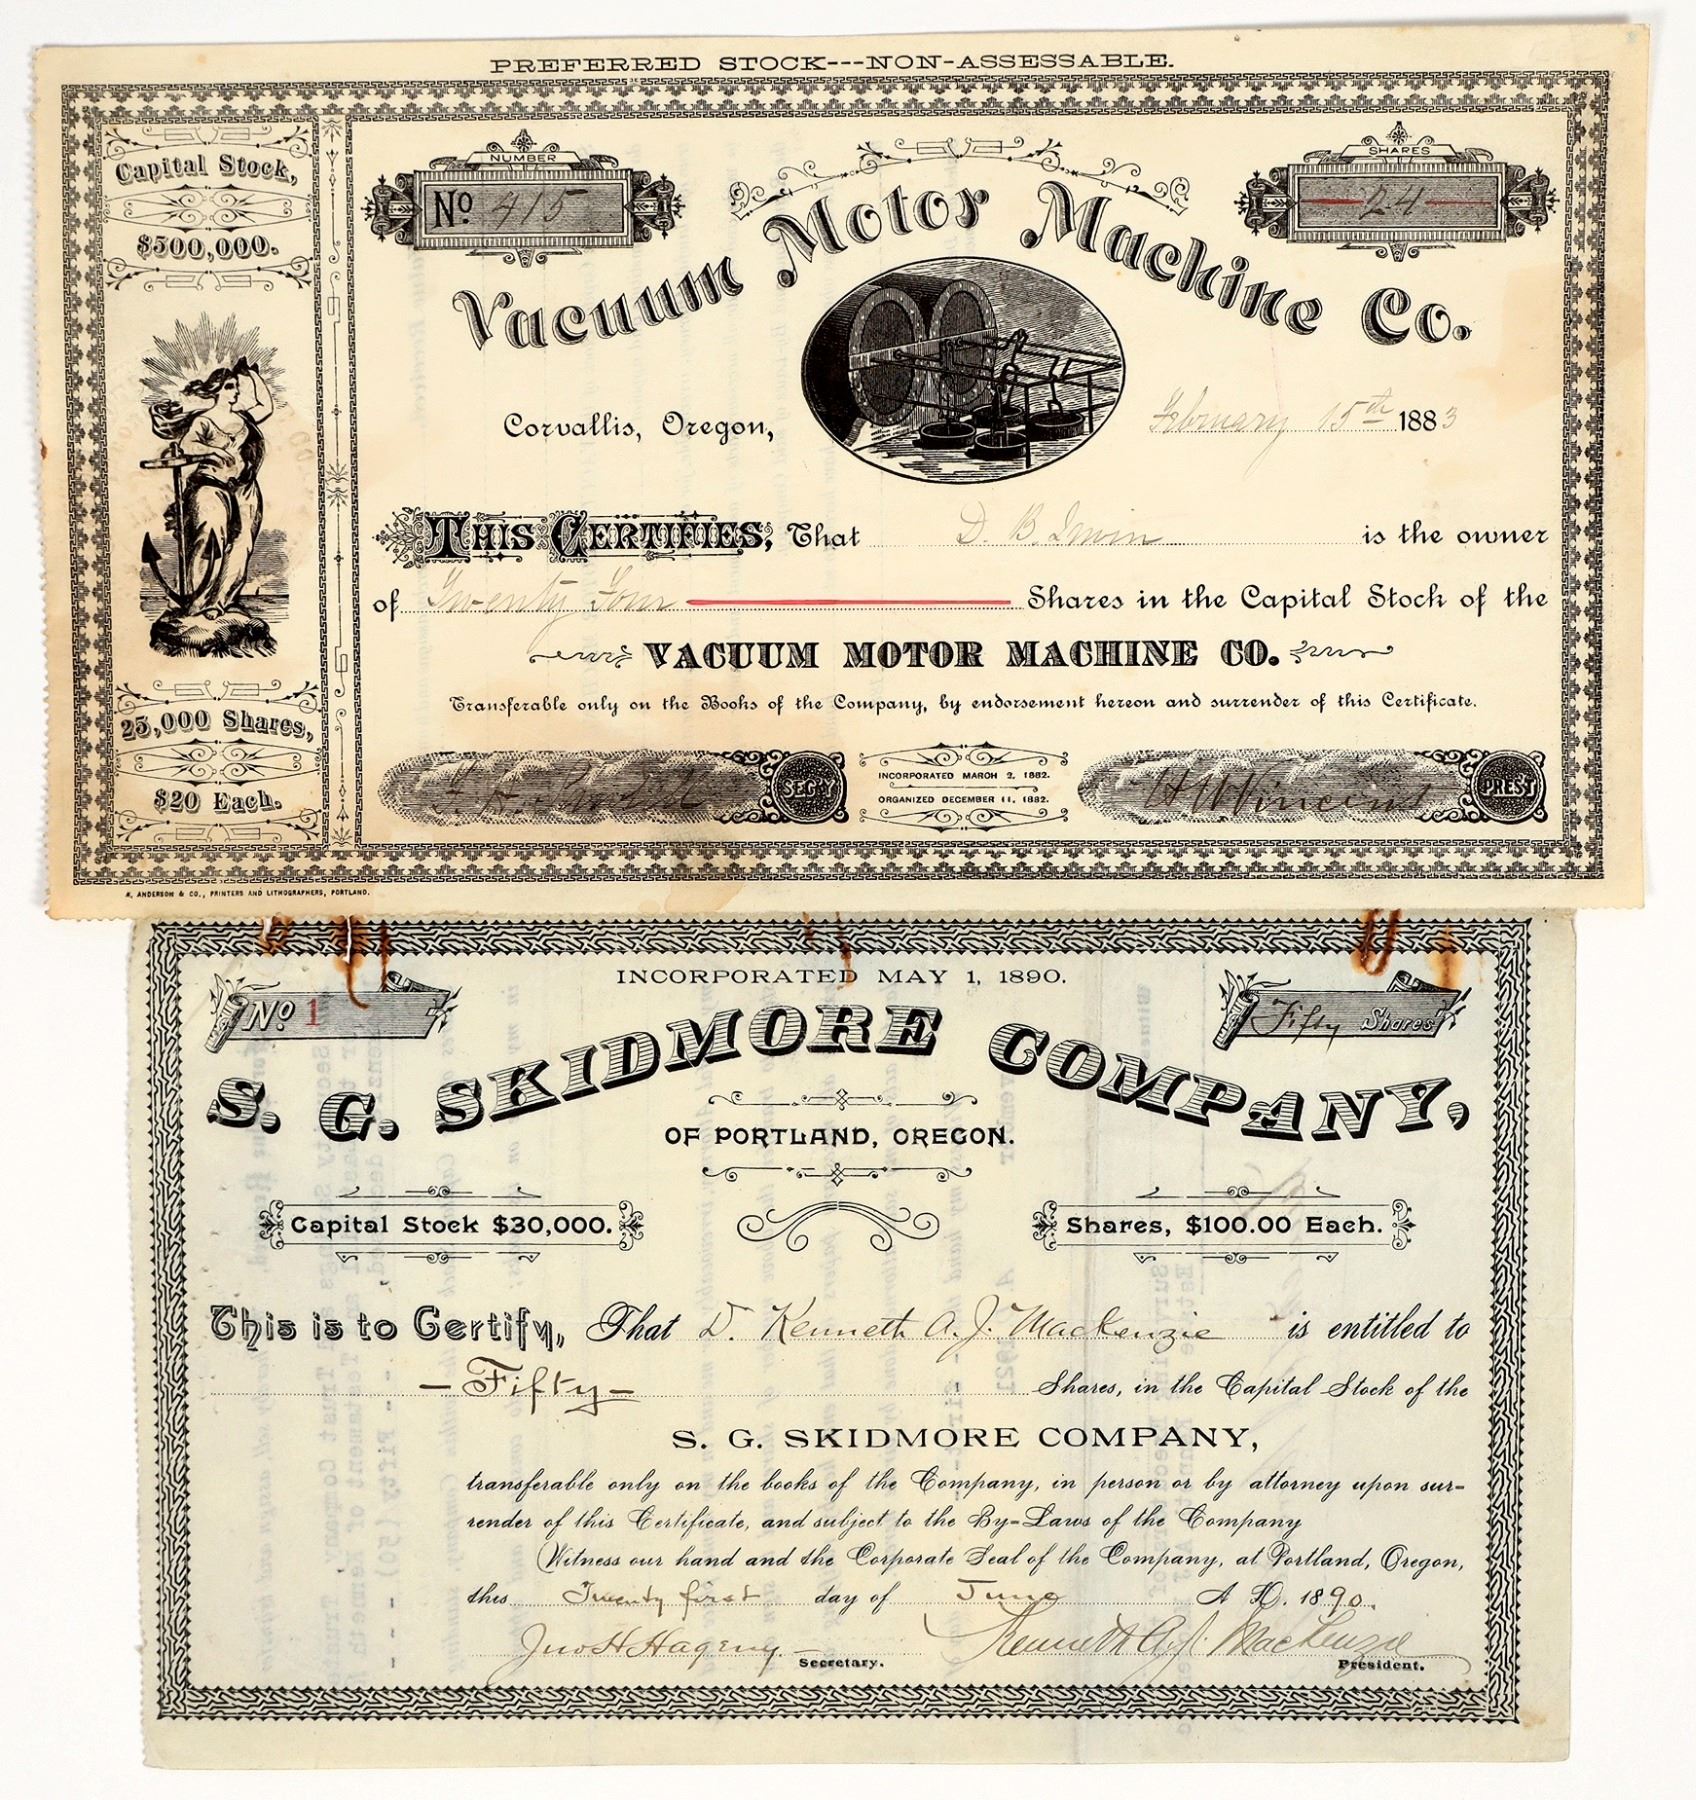 PREFERRED STOCK---NON-ASSESSABLE.
Capital Stock,
$500,000.
25,000 Shares,
$20 Each.
NUMBER
No 415
SHARES
24
Vacuum Motor Machine Co.
Corvallis, Oregon, February 15th 1883
THIS CERTIFIES, That D. B. Irwin is the owner
of Twenty Four Shares in the Capital Stock of the
VACUUM MOTOR MACHINE CO.
Transferable only on the Books of the Company, by endorsement hereon and surrender of this Certificate.
SEC'Y
INCORPORATED MARCH 2, 1882.
ORGANIZED DECEMBER 11, 1882.
W Vincent PREST
A. ANDERSON & CO., PRINTERS AND LITHOGRAPHERS, PORTLAND.
INCORPORATED MAY 1, 1890.
No 1
Fifty Shares
S. G. SKIDMORE COMPANY,
OF PORTLAND, OREGON.
Capital Stock $30,000.
Shares, $100.00 Each.
This is to Certify, That D. Kenneth A. J. Mackenzie is entitled to
- Fifty - Shares, in the Capital Stock of the
S. G. SKIDMORE COMPANY,
transferable only on the books of the Company, in person or by attorney upon sur-
render of this Certificate, and subject to the By-Laws of the Company
Witness our hand and the Corporate Seal of the Company, at Portland, Oregon,
this Twenty first day of June A. D. 1890.
Jno H Hageny Secretary.
Kenneth A. J. MacKenzie President.